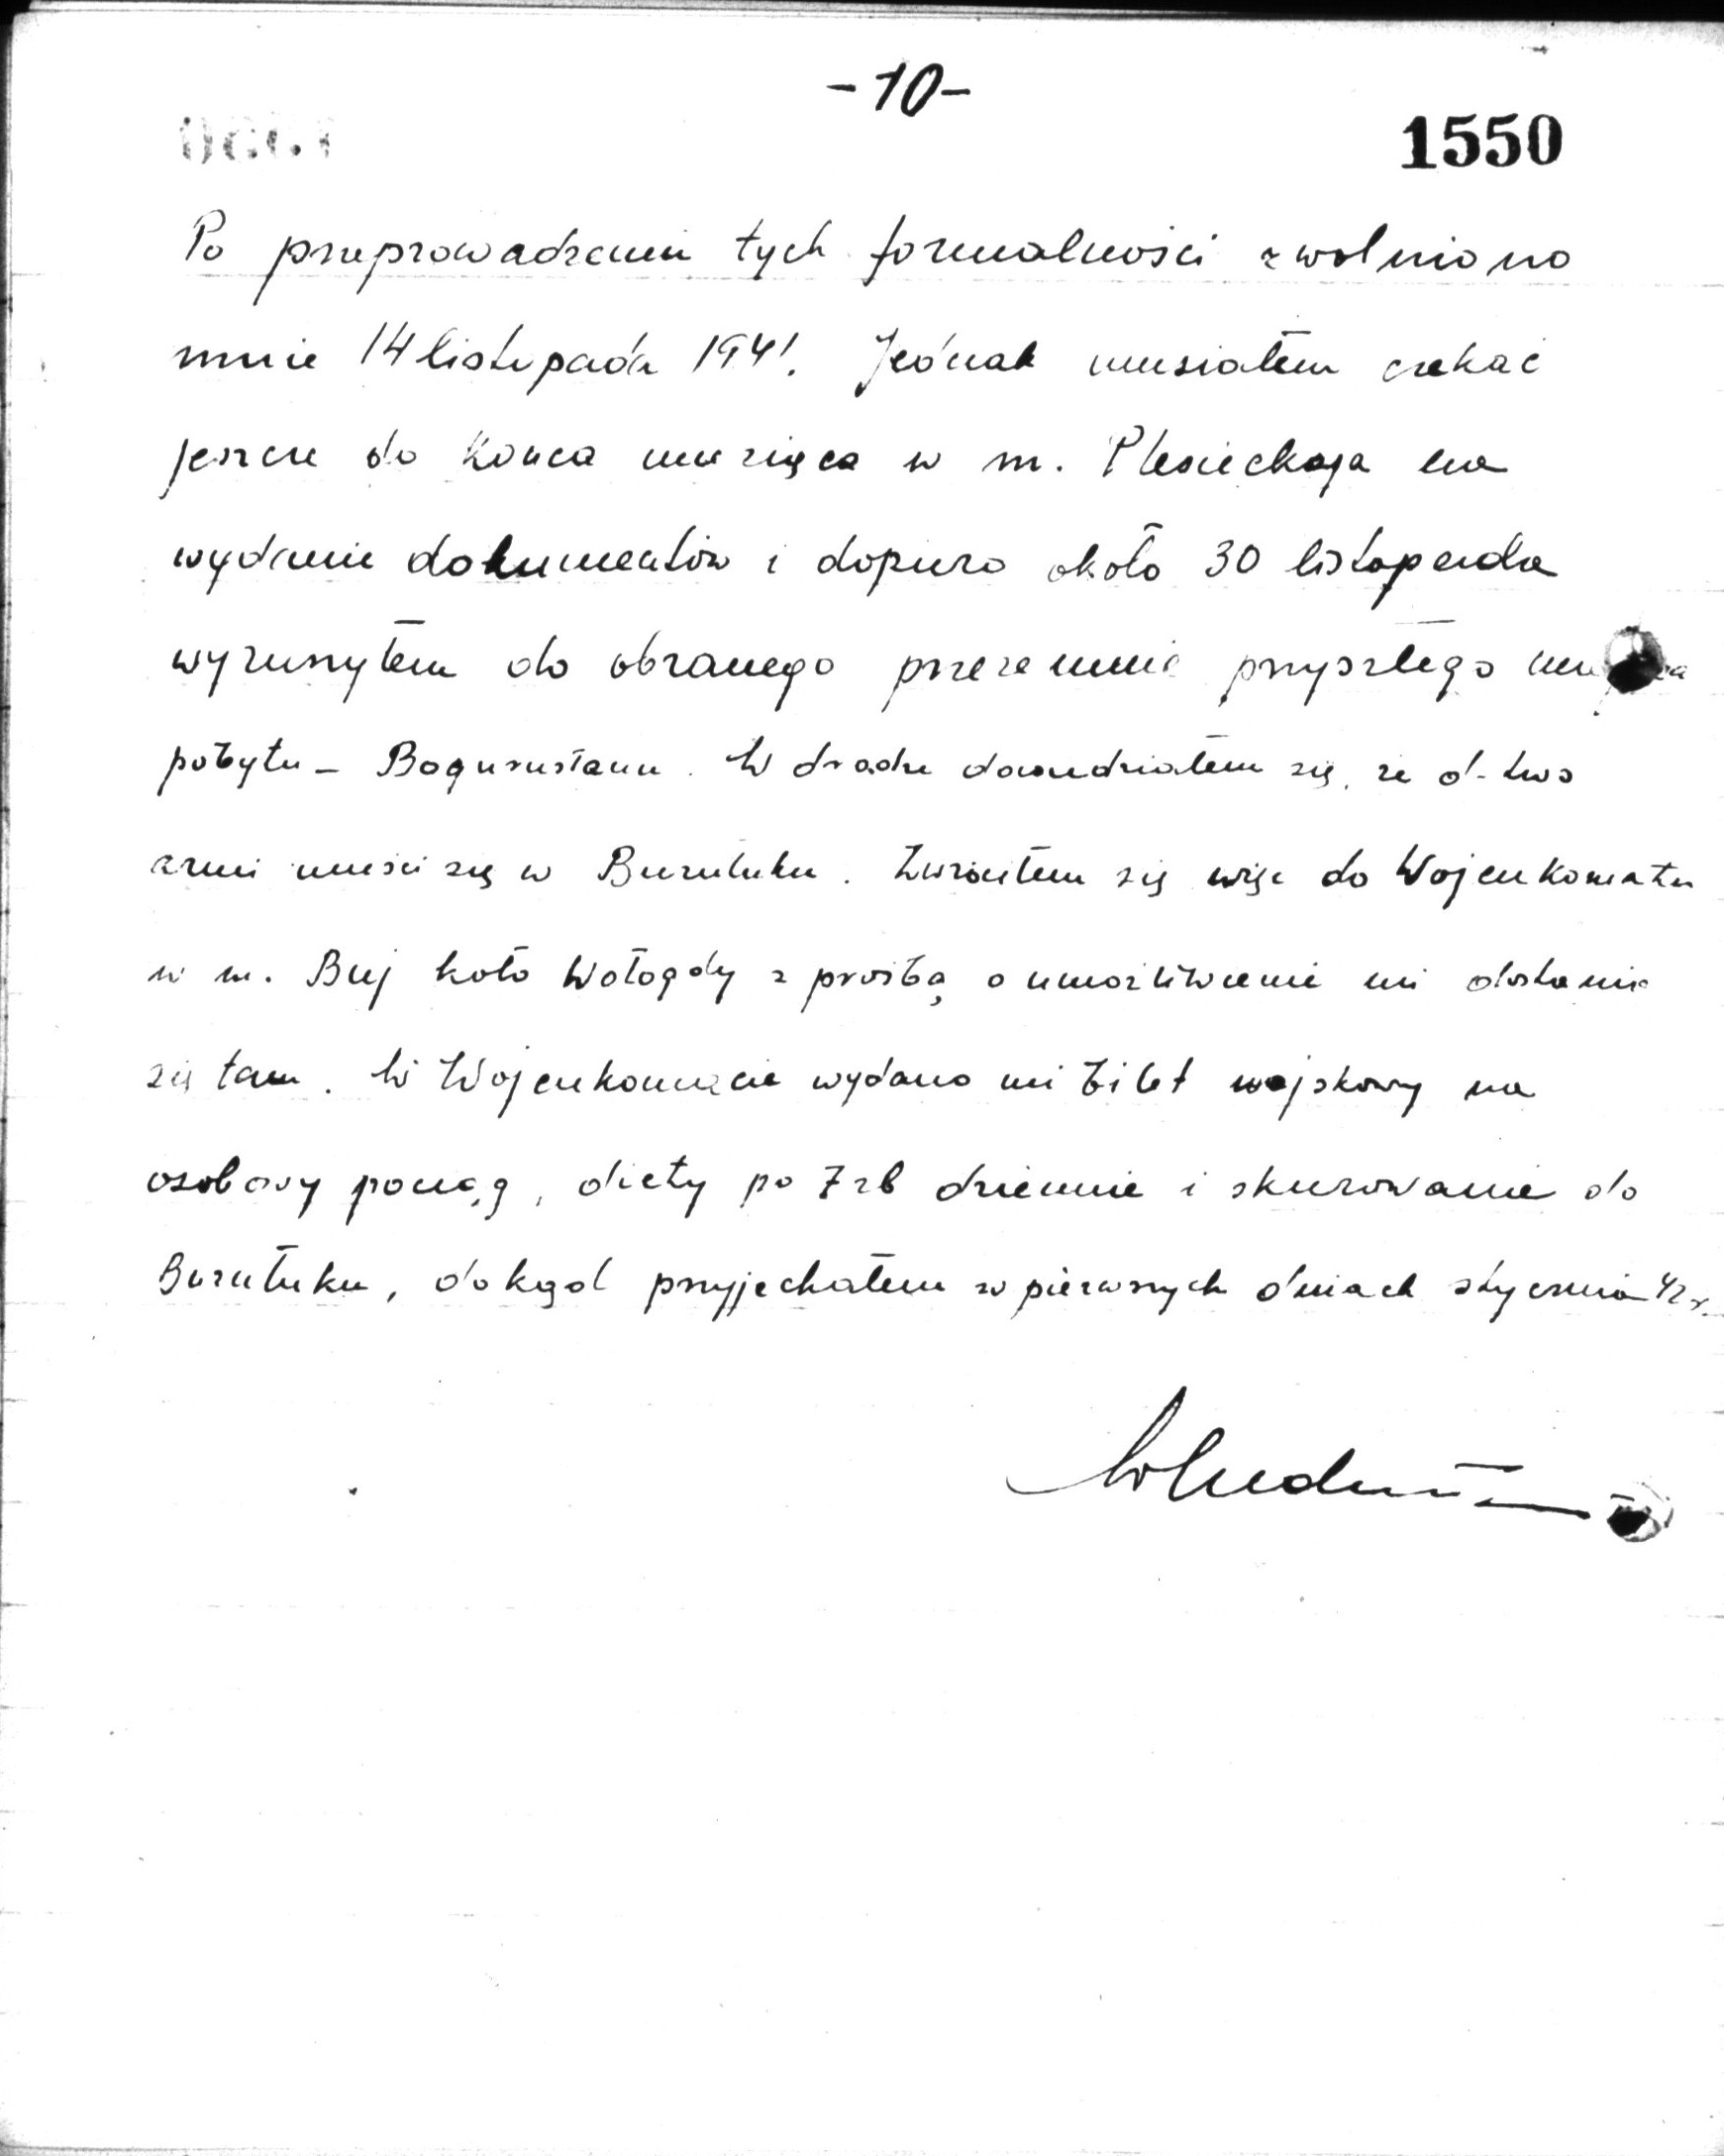 -10-
1550
Po przeprowadzeniu tych formalności zwolniono
mnie 14 listopada 1941. Jednak musiałem czekać
jeszcze do końca miesiąca w m. Plesieckaja na
wydanie dokumentów i dopiero około 30 listopada
wyruszyłem do obranego przeze mnie przyszłego
pobytu - Bogurusłanu. W drodze dowiedziałem się, że d-two
armi mieści się w Buzułuku. Zwróciłem się więc do Wojenkomatu
w m. Buj koło Wołogdy z prośbą o umożliwienie mi dostania
się tam. W Wojenkomacie wydano mi bilet wojskowy na
osobowy pociąg, diety po 7 rb dziennie i skierowanie do
Buzułuku, dokąd przyjechałem w pierwszych dniach stycznia 42 r.